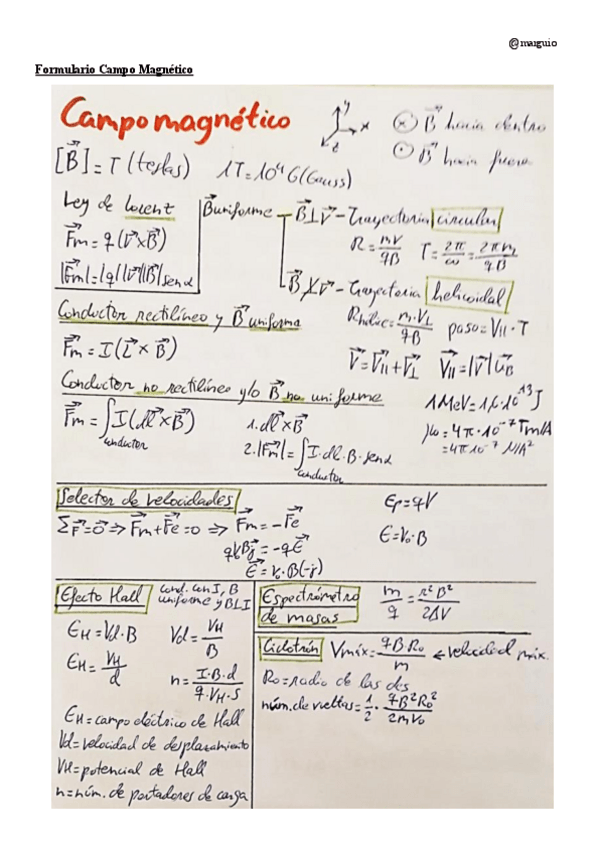 @maiguio
Formulario Campo Magnético
Campo magnético
y
x
z
⊗ B⃗ hacia dentro
⊙ B⃗ hacia fuera
[B⃗] = T (teslas) 1T = 10⁴ G (Gauss)
Ley de Lorent
F⃗m = q (v⃗ × B⃗)
|F⃗m| = |q| |v⃗| |B⃗| sen α
B⃗ uniforme
B⃗ ⊥ v⃗ - Trayectoria circular
R = mV/qB T = 2π/ω = 2πm/qB
B⃗ ⊥̸ v⃗ - Trayectoria helicoidal
Rhélice = m·V⊥/qB paso = V∥ · T
V⃗ = V⃗∥ + V⃗⊥ V⃗∥ = |V⃗| u⃗B
Conductor rectilíneo y B⃗ uniforme
F⃗m = I (L⃗ × B⃗)
Conductor no rectilíneo y/o B⃗ no uniforme
F⃗m = ∫ I (dl⃗ × B⃗)
conductor
1. dl⃗ × B⃗
2. |F⃗m| = ∫ I · dl · B · sen α
conductor
1 MeV = 1,6 · 10⁻¹³ J
μ₀ = 4π · 10⁻⁷ Tm/A
= 4π 10⁻⁷ N/A²
Selector de velocidades
ΣF⃗ = 0⃗ ⇒ F⃗m + F⃗e = 0 ⇒ F⃗m = -F⃗e
= -qE⃗
E⃗ = V₀ · B(-j⃗)
Ep = qV
E = V₀ · B
Efecto Hall
cond. con I, B
uniforme y B⊥I
EH = Vd · B Vd = VH/B
EH = VH/d n = I·B·d/q·VH·S
EH = campo eléctrico de Hall
Vd = velocidad de desplazamiento
VH = potencial de Hall
n = núm. de portadores de carga
Espectrómetro
de masas
m/q = r²B²/2ΔV
Ciclotrón Vmáx = qBR₀/m ← velocidad máx.
R₀ = radio de las des
núm. de vueltas = 1/2 · qB²R₀²/2mV₀